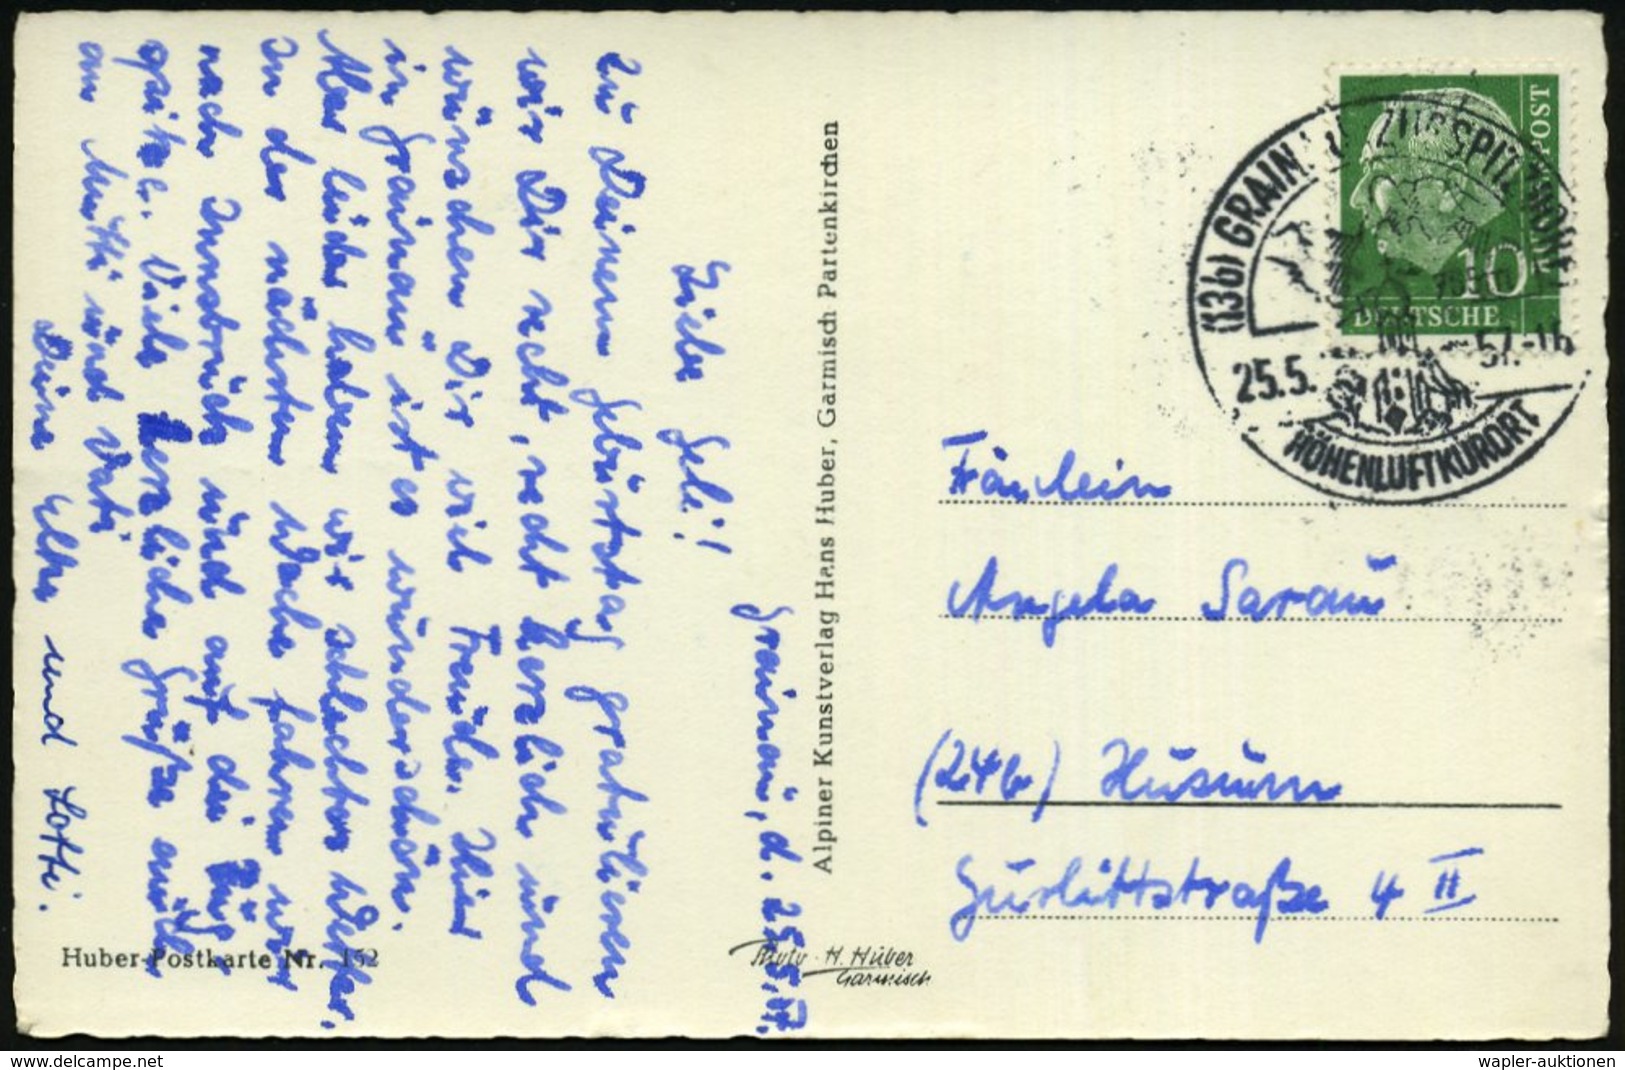 Grainau, d. 25.5.57.
Liebe Gele!
Zu Deinem Geburtstag gratulieren
wir Dir recht, recht herzlich und
wünschen Dir viel Freude. Hier
in Grainau ist es wunderschön.
Aber leider haben wir schlechtes Wetter.
In der nächsten Woche fahren wir
nach Innsbruck und auf die Zug-
spitze. Viele herzliche Grüße auch
an Mutti und Vati
Deine Elke und Lotti.
Huber-Postkarte Nr. 152
Alpiner Kunstverlag Hans Huber, Garmisch Partenkirchen
Foto H. Huber
Garmisch
POST
10
DEUTSCHE
(13b) GRAINAU ZUGSPITZDORF
25.5. 57.-16
HÖHENLUFTKURORT
Fräulein
Angela Sarau
(24b) Husum
Gurlittstraße 4 II
www.delcampe.net
wapler-auktionen